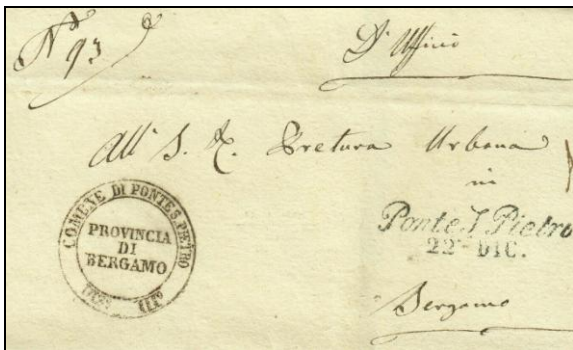 N.° 93
D'Ufficio
All' I. R. Pretura Urbana
in
Ponte S. Pietro
22 DIC.
COMUNE DI PONTE S. PIETRO
PROVINCIA
DI
BERGAMO
Bergamo